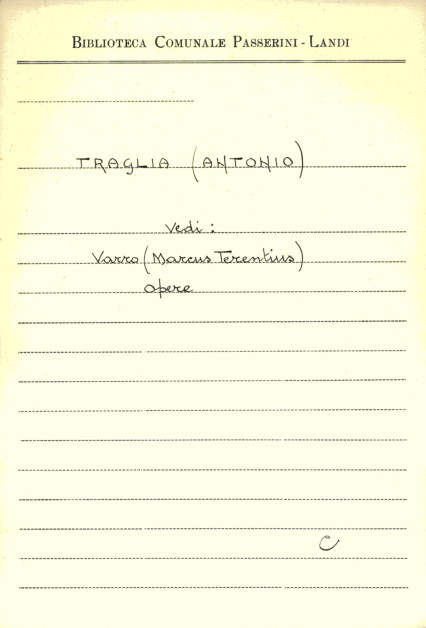 BIBLIOTECA COMUNALE PASSERINI - LANDI
TRAGLIA (ANTONIO)
Vedi :
Varro (Marcus Terentius)
Opere
C